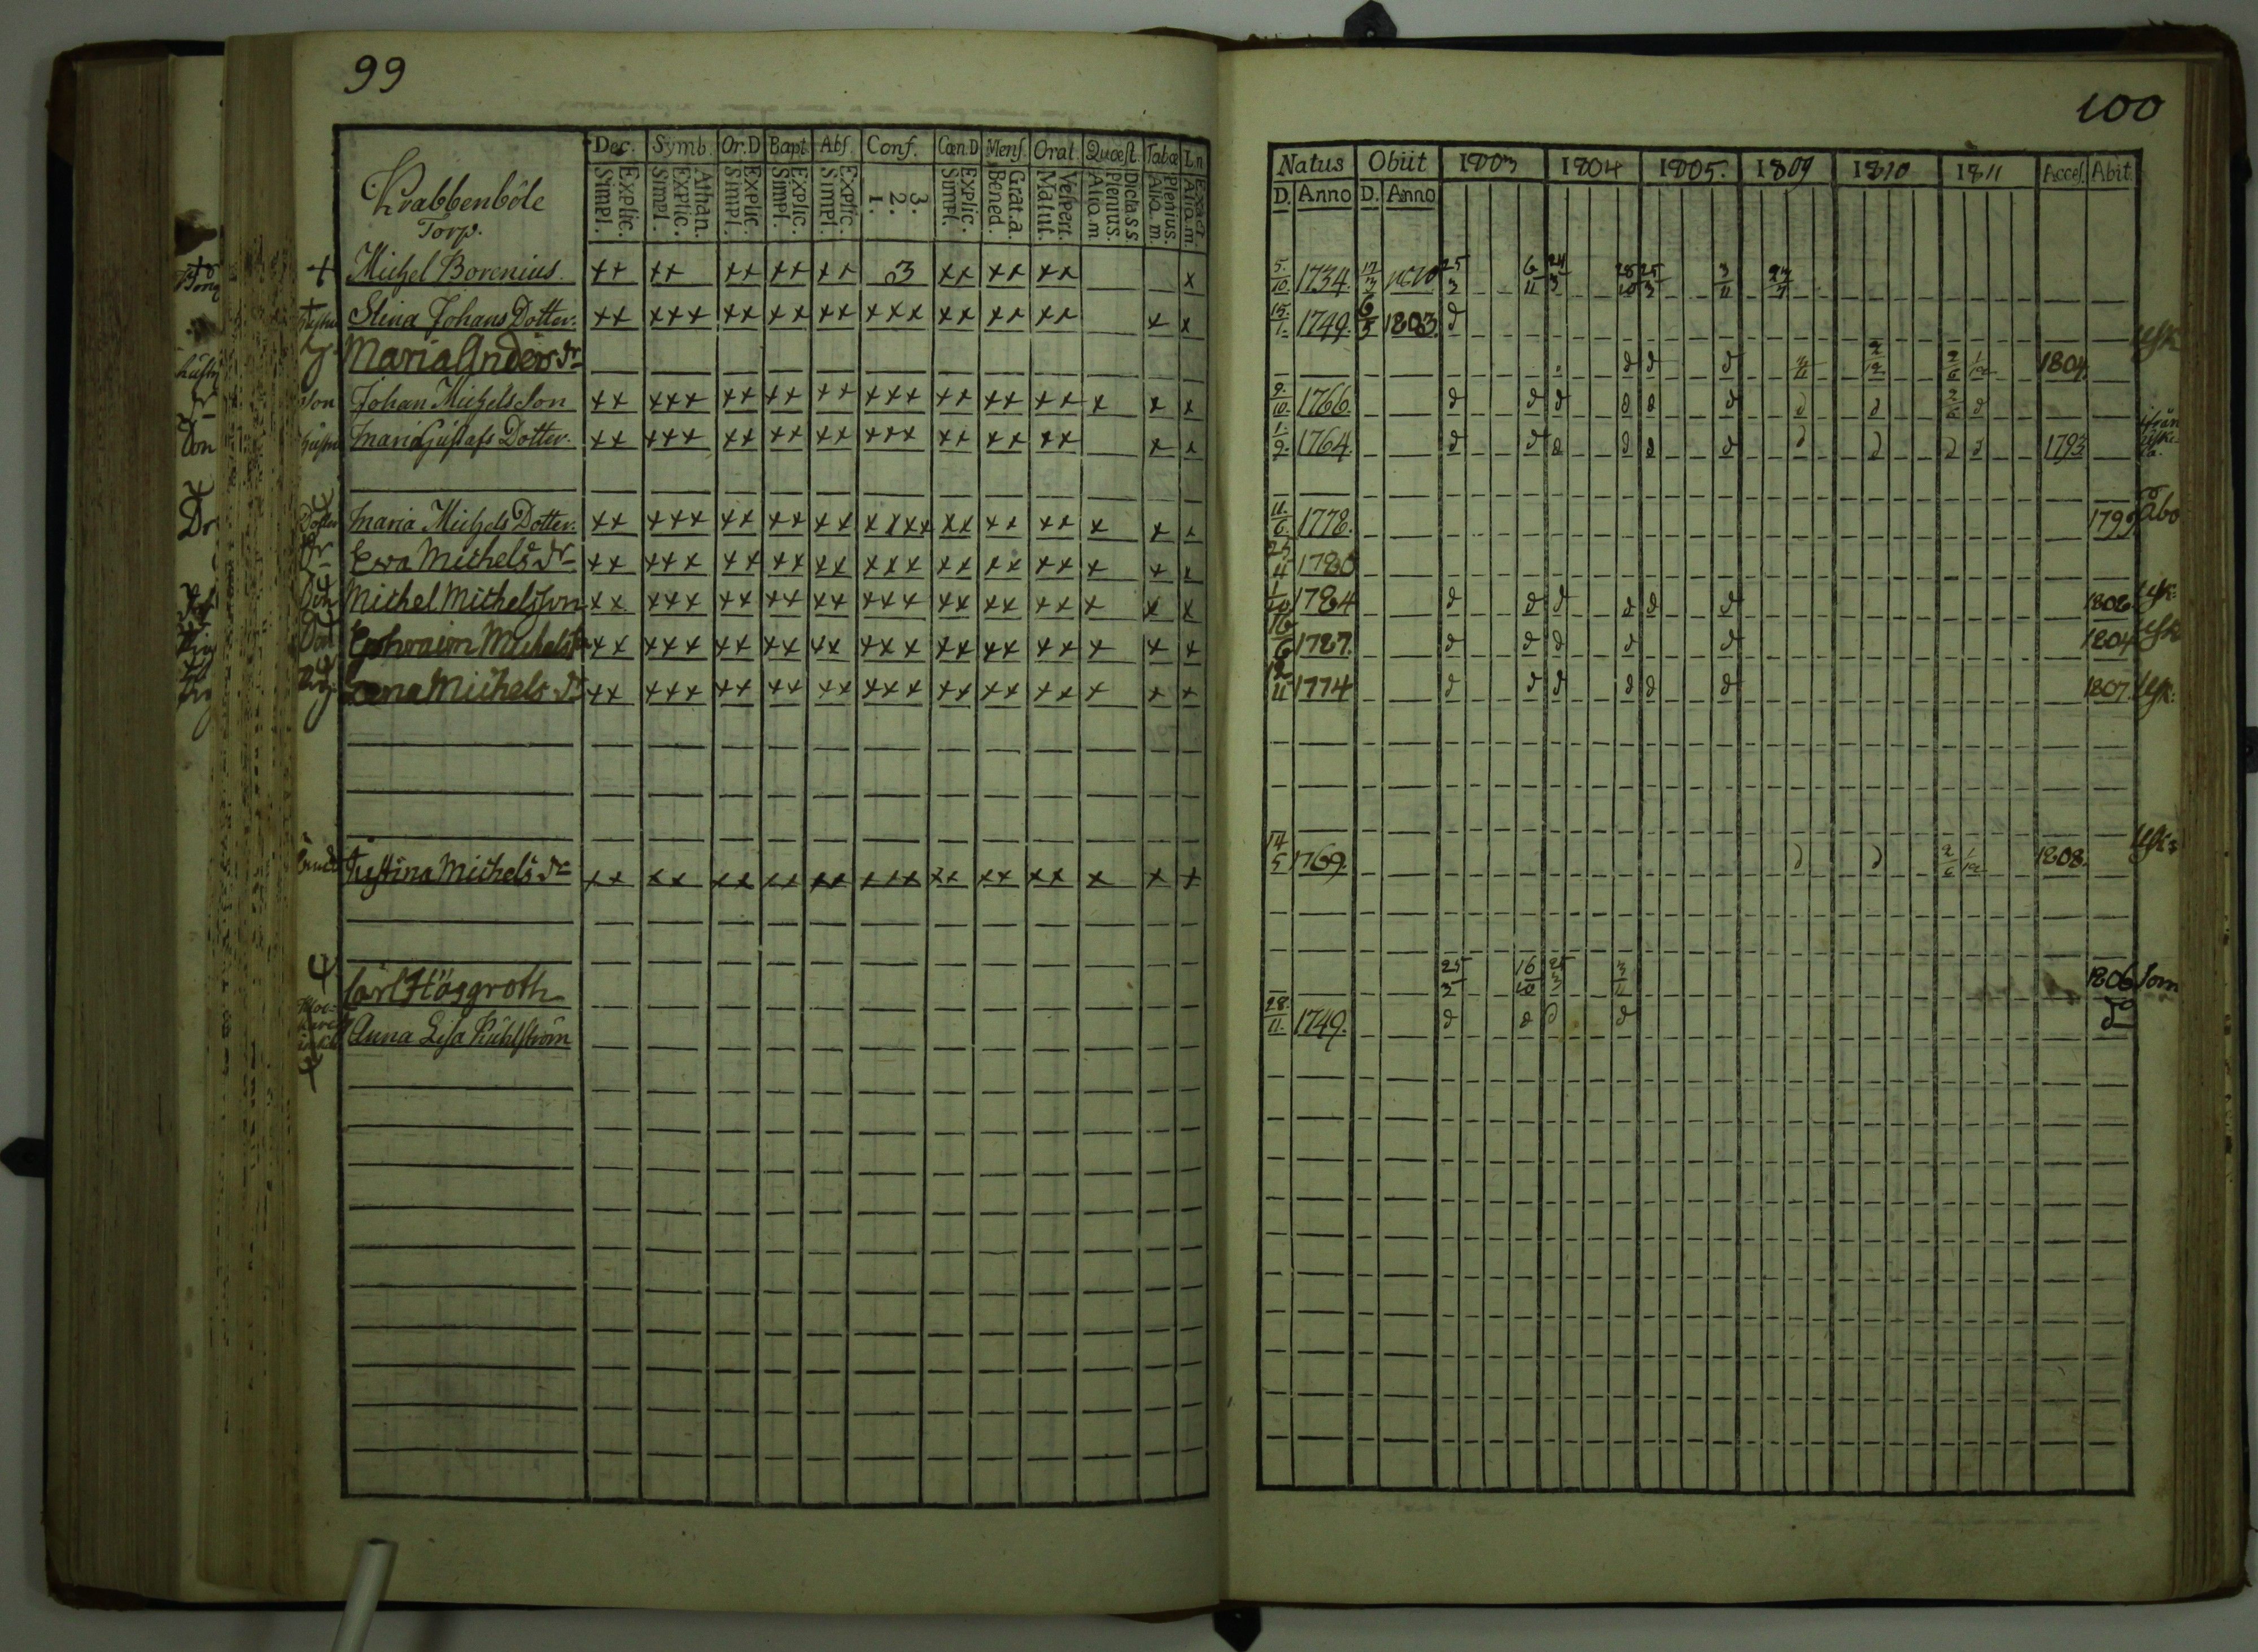 99
Dec. Symb. Or.D Bapt. Abs. Conf. Cœn.D Mens. Orat. Quæst. Tabæ L.n.
Explic. Simpl. Athan. Explic. Simpl. Explic. Simpl. Explic. Simpl. Explic. Simpl. 3. 2. 1. Explic. Simpl. Grat. a. Bened. Vespert. Matut. Dicta s.s. Plenius. Aliq. m. Plenius. Aliq. m. Exact. Aliq. m.
Krabbenböle
Torp.
+ Michel Borenius. ++ ++ ++ ++ ++ 3 ++ ++ ++ x
+ Stina Johans Dotter. ++ +++ ++ ++ ++ +++ ++ ++ ++ x x
Maria Anders dr
Son Johan Michels Son ++ +++ ++ ++ ++ +++ ++ ++ ++ x x x
Maria Gustafs Dotter. ++ +++ ++ ++ ++ +++ ++ ++ ++ x x
Dotter Maria Michels Dotter. ++ +++ ++ ++ ++ ++++ ++ ++ ++ x x x
Dr Ewa Michels dr ++ +++ ++ ++ ++ +++ ++ ++ ++ x x x
Son Michel Michelsson ++ +++ ++ ++ ++ +++ ++ ++ ++ x x x
Son Ephraim Michels ++ +++ ++ ++ ++ +++ ++ ++ ++ x x x
Lena Michels dr ++ +++ ++ ++ ++ +++ ++ ++ ++ x x x
Justina Michels dr ++ ++ ++ ++ ++ +++ ++ ++ ++ x x x
Carl Höggroth
Anna Lisa Kuhlström
100
Natus Obiit 1803 1804 1805. 1809 1810 1811 Acces. Abit.
D. Anno D. Anno
5/10 1734. 25/3 6/11 24/3 28/10 25/3 3/11
15/1 1749. 6/5 1803. d
d d d 2/6 1804
9/10 1766. d d d d d d d d 2/6 d
1/9 1764. d d d d d d d d d d 1793 ifrån
11/6 1778. 1799 Åbo
1780
1784 d d d d d d 1806
16/6 1787. d d d d d 1804
12/11 1774 d d d d d d 1807.
14/5 1769. d d 2/6 1808.
25/3 16/10 25/3 3/11 1806 Som
28/11 1749. d d d d do